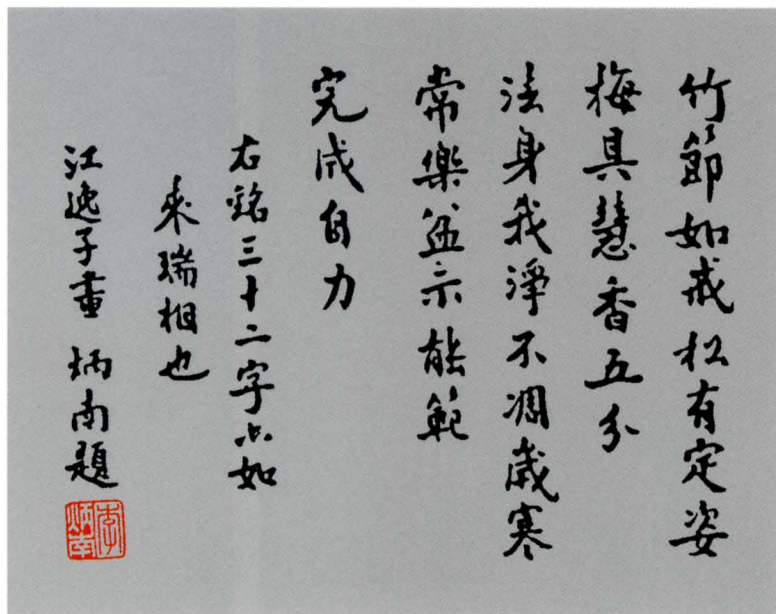 竹節如戒松有定姿
梅具慧香五分
法身我淨不凋歲寒
常樂盆示能範
完成自力
右銘三十二字亦如
來瑞相也
江逸子畫 炳南題
李炳南